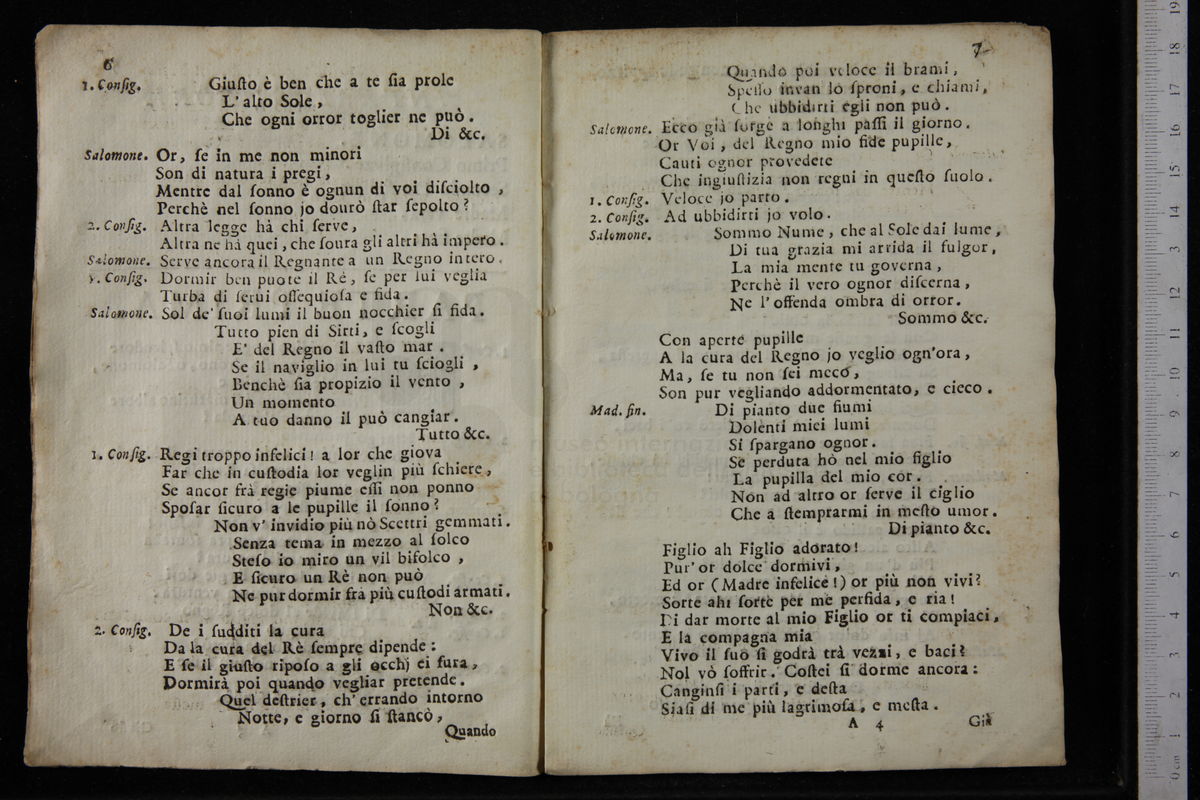 6
1. Conſig. Giuſto è ben che a te ſia prole
L' alto Sole,
Che ogni orror toglier ne può.
Di &c.
Salomone. Or, ſe in me non minori
Son di natura i pregi,
Mentre dal ſonno è ognun di voi diſciolto,
Perchè nel ſonno jo dourò ſtar ſepolto?
2. Conſig. Altra legge hà chi ſerve,
Altra ne hà quei, che ſoura gli altri hà impero.
Salomone. Serve ancora il Regnante a un Regno intero.
1. Conſig. Dormir ben puote il Rè, ſe per lui veglia
Turba di ſerui oſſequioſa e fida.
Salomone. Sol de' ſuoi lumi il buon nocchier ſi fida.
Tutto pien di Sirti, e ſcogli
E' del Regno il vaſto mar.
Se il naviglio in lui tu ſciogli,
Benchè ſia propizio il vento,
Un momento
A tuo danno il può cangiar.
Tutto &c.
1. Conſig. Regi troppo infelici! a lor che giova
Far che in cuſtodia lor veglin più ſchiere,
Se ancor frà regie piume eſſi non ponno
Spoſar ſicuro a le pupille il ſonno?
Non v' invidio più nò Scettri gemmati.
Senza tema in mezzo al ſolco
Steſo io miro un vil bifolco,
E ſicuro un Rè non può
Ne pur dormir fra più cuſtodi armati.
Non &c.
2. Conſig. De i ſudditi la cura
Da la cura del Rè ſempre dipende:
E ſe il giuſto ripoſo a gli occhj ei fura,
Dormirà poi quando vegliar pretende.
Quel deſtrier, ch' errando intorno
Notte, e giorno ſi ſtancò,
Quando
7
Quando poi veloce il brami,
Speſſo invan lo ſproni, e chiami,
Che ubbidirti egli non può.
Salomone. Ecco già ſorge a longhi paſſi il giorno.
Or Voi, del Regno mio fide pupille,
Cauti ognor provedete
Che ingiuſtizia non regni in queſto ſuolo.
1. Conſig. Veloce jo parto.
2. Conſig. Ad ubbidirti jo volo.
Salomone. Sommo Nume, che al Sole dai lume,
Di tua grazia mi arrida il fulgor,
La mia mente tu governa,
Perchè il vero ognor diſcerna,
Ne l' offenda ombra di orror.
Sommo &c.
Con aperte pupille
A la cura del Regno jo veglio ogn'ora,
Ma, ſe tu non ſei meco,
Son pur vegliando addormentato, e cieco.
Mad. fin. Di pianto due fiumi
Dolenti miei lumi
Si ſpargano ognor.
Se perduta hò nel mio figlio
La pupilla del mio cor.
Non ad altro or ſerve il ciglio
Che a ſtemprarmi in meſto umor.
Di pianto &c.
Figlio ah Figlio adorato!
Pur' or dolce dormivi,
Ed or (Madre infelice!) or più non vivi?
Sorte ahi ſorte per me perfida, e ria!
Di dar morte al mio Figlio or ti compiaci,
E la compagna mia
Vivo il ſuo ſi godrà trà vezzi, e baci?
Nol vò ſoffrir. Coſtei ſi dorme ancora:
Canginſi i parti, e deſta
Siaſi di me più lagrimoſa, e meſta.
A 4 Già